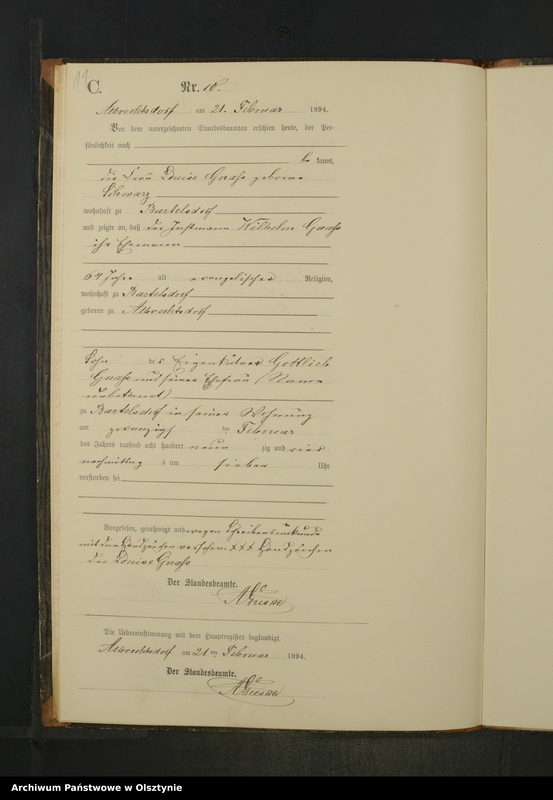 C.
Nr. 10.
Albrechtsdorf am 21. Februar 1894.
Vor dem unterzeichneten Standesbeamten erschien heute, der Per-
sönlichkeit nach
be kannt,
die Frau Louise geborene
Schwarz
wohnhaft zu Bartelsdorf
und zeigte an, daß der Instmann Wilhelm
ihr Ehemann
64 Jahre alt evangelischer Religion,
wohnhaft zu Bartelsdorf
geboren zu Albrechtsdorf
Sohn des Eigenkätner Gottlieb
und seiner Ehefrau (Name
unbekannt)
zu Bartelsdorf in seiner Wohnung
am zwanzigst ten Februar
des Jahres tausend acht hundert neun zig und vier
nachmittag s um sieben Uhr
verstorben sei
Vorgelesen, genehmigt und wegen Schreibensunkunde
mit den Handzeichen versehen. XXX Handzeichen
der Louise
Der Standesbeamte.
Die Uebereinstimmung mit dem Hauptregister beglaubigt.
Albrechtsdorf am 21 ten Februar 1894.
Der Standesbeamte.
Archiwum Państwowe w Olsztynie